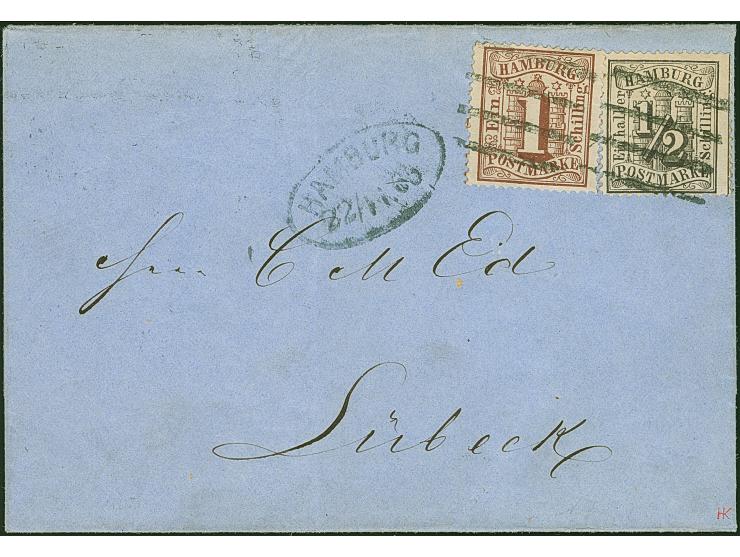 HAMBURG
Ein Schilling
1
POSTMARKE
HAMBURG
Ein halber Schilling
1/2
POSTMARKE
HAMBURG
Herrn C M Eid
Lübeck
HK